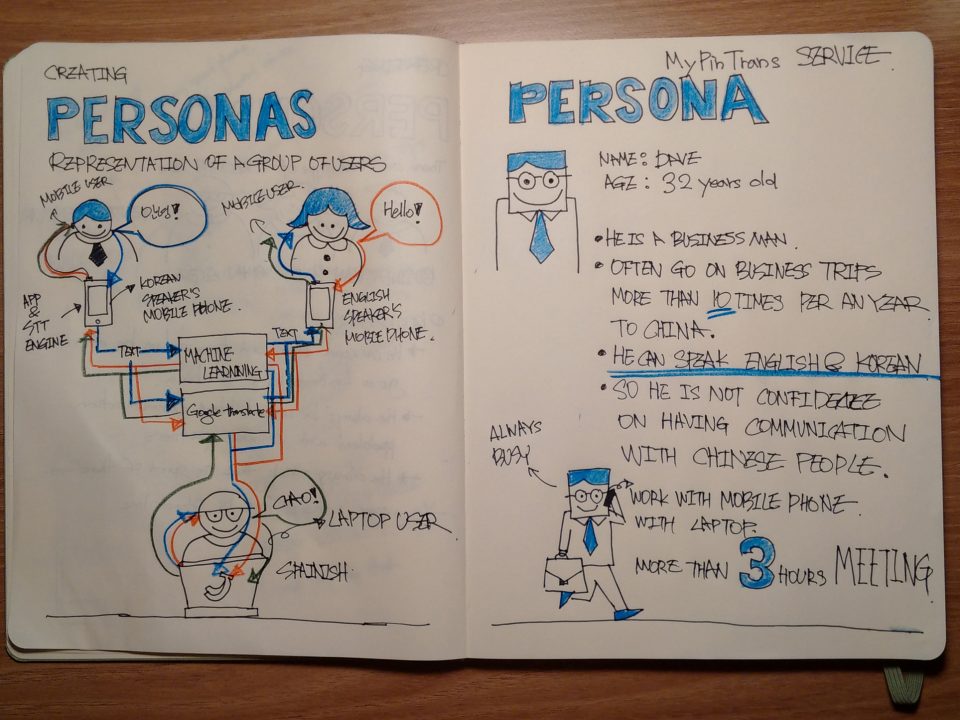 CREATING
PERSONAS
REPRESENTATION OF A GROUP OF USERS
MOBILE USER
안녕!
MOBILE USER.
Hello!
APP & STT ENGINE
KOREAN SPEAKER'S MOBILE PHONE.
ENGLISH SPEAKER'S MOBILE PHONE.
TEXT
TEXT
MACHINE LEARNNING
Google translate
CIAO!
LAPTOP USER
SPAINISH.
MyPinTrans SERVICE
PERSONA
NAME: DAVE
AGE: 32 years old
• HE IS A BUSINESS MAN.
• OFTEN GO ON BUSINESS TRIPS
MORE THAN 10 TIMES PER AN YEAR
TO CHINA.
• HE CAN SPEAK ENGLISH & KOREAN
• SO HE IS NOT CONFIDENCE
ON HAVING COMMUNICATION
WITH CHINESE PEOPLE.
ALWAYS BUSY
WORK WITH MOBILE PHONE.
WITH LAPTOP.
MORE THAN 3 HOURS MEETING